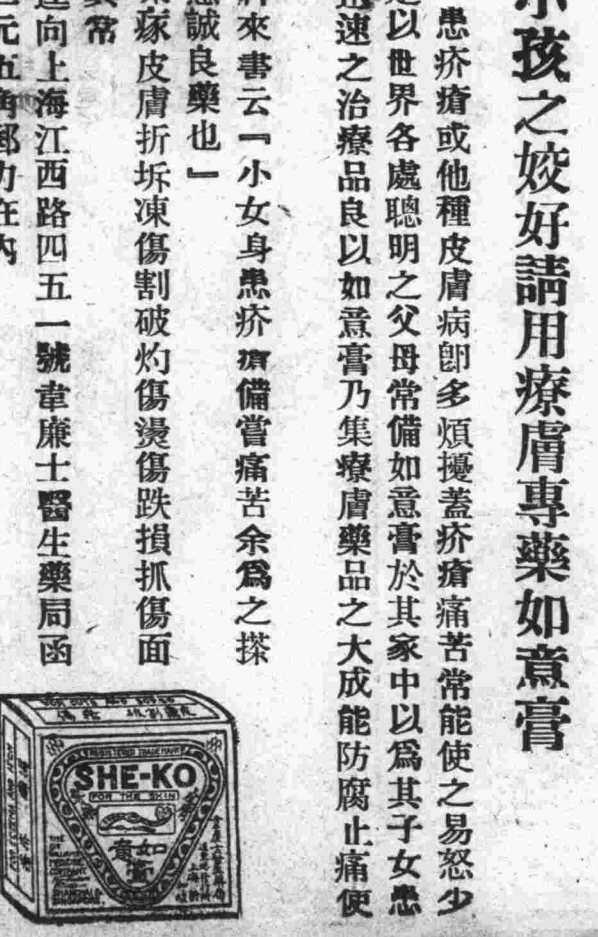 孩之姣好請用療膚專藥如意膏
患疥瘡或他種皮膚病卽多煩擾蓋疥瘡痛苦常能使之易怒少
以世界各處聰明之父母常備如意膏於其家中以爲其子女患
速之治療品良以如意膏乃集療膚藥品之大成能防腐止痛便
來書云『小女身患疥瘡備嘗痛苦余爲之搽
誠良藥也』
皮膚折坼凍傷割破灼傷燙傷跌損抓傷面
常
向上海江西路四五一號韋廉士醫生藥局函
元五角郵力在內
REGISTERED TRADE MARK
SHE-KO
FOR THE SKIN
如意膏